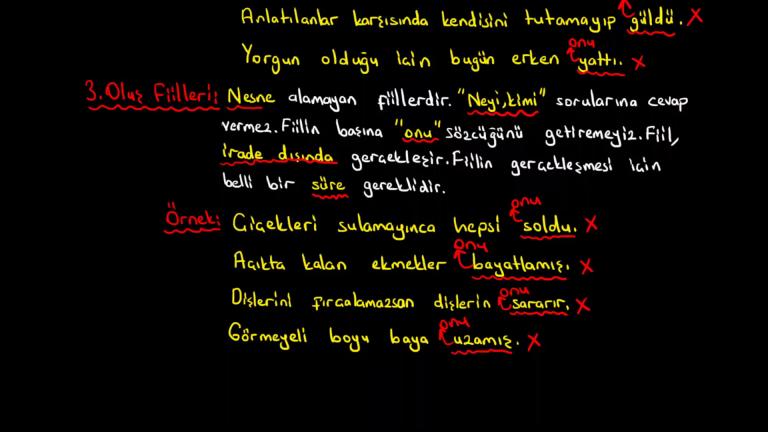 Anlatılanlar karşısında kendisini tutamayıp güldü. X
onu
Yorgun olduğu için bugün erken yattı. X
3. Oluş Fiilleri: Nesne alamayan fiillerdir. "Neyi, kimi" sorularına cevap
vermez. Fiilin başına "onu" sözcüğünü getiremeyiz. Fiil,
irade dışında gerçekleşir. Fiilin gerçekleşmesi için
belli bir süre gereklidir.
onu
Örnek: Çiçekleri sulamayınca hepsi soldu. X
onu
Açıkta kalan ekmekler bayatlamış. X
onu
Dişlerini fırçalamazsan dişlerin sararır. X
onu
Görmeyeli boyu baya uzamış. X